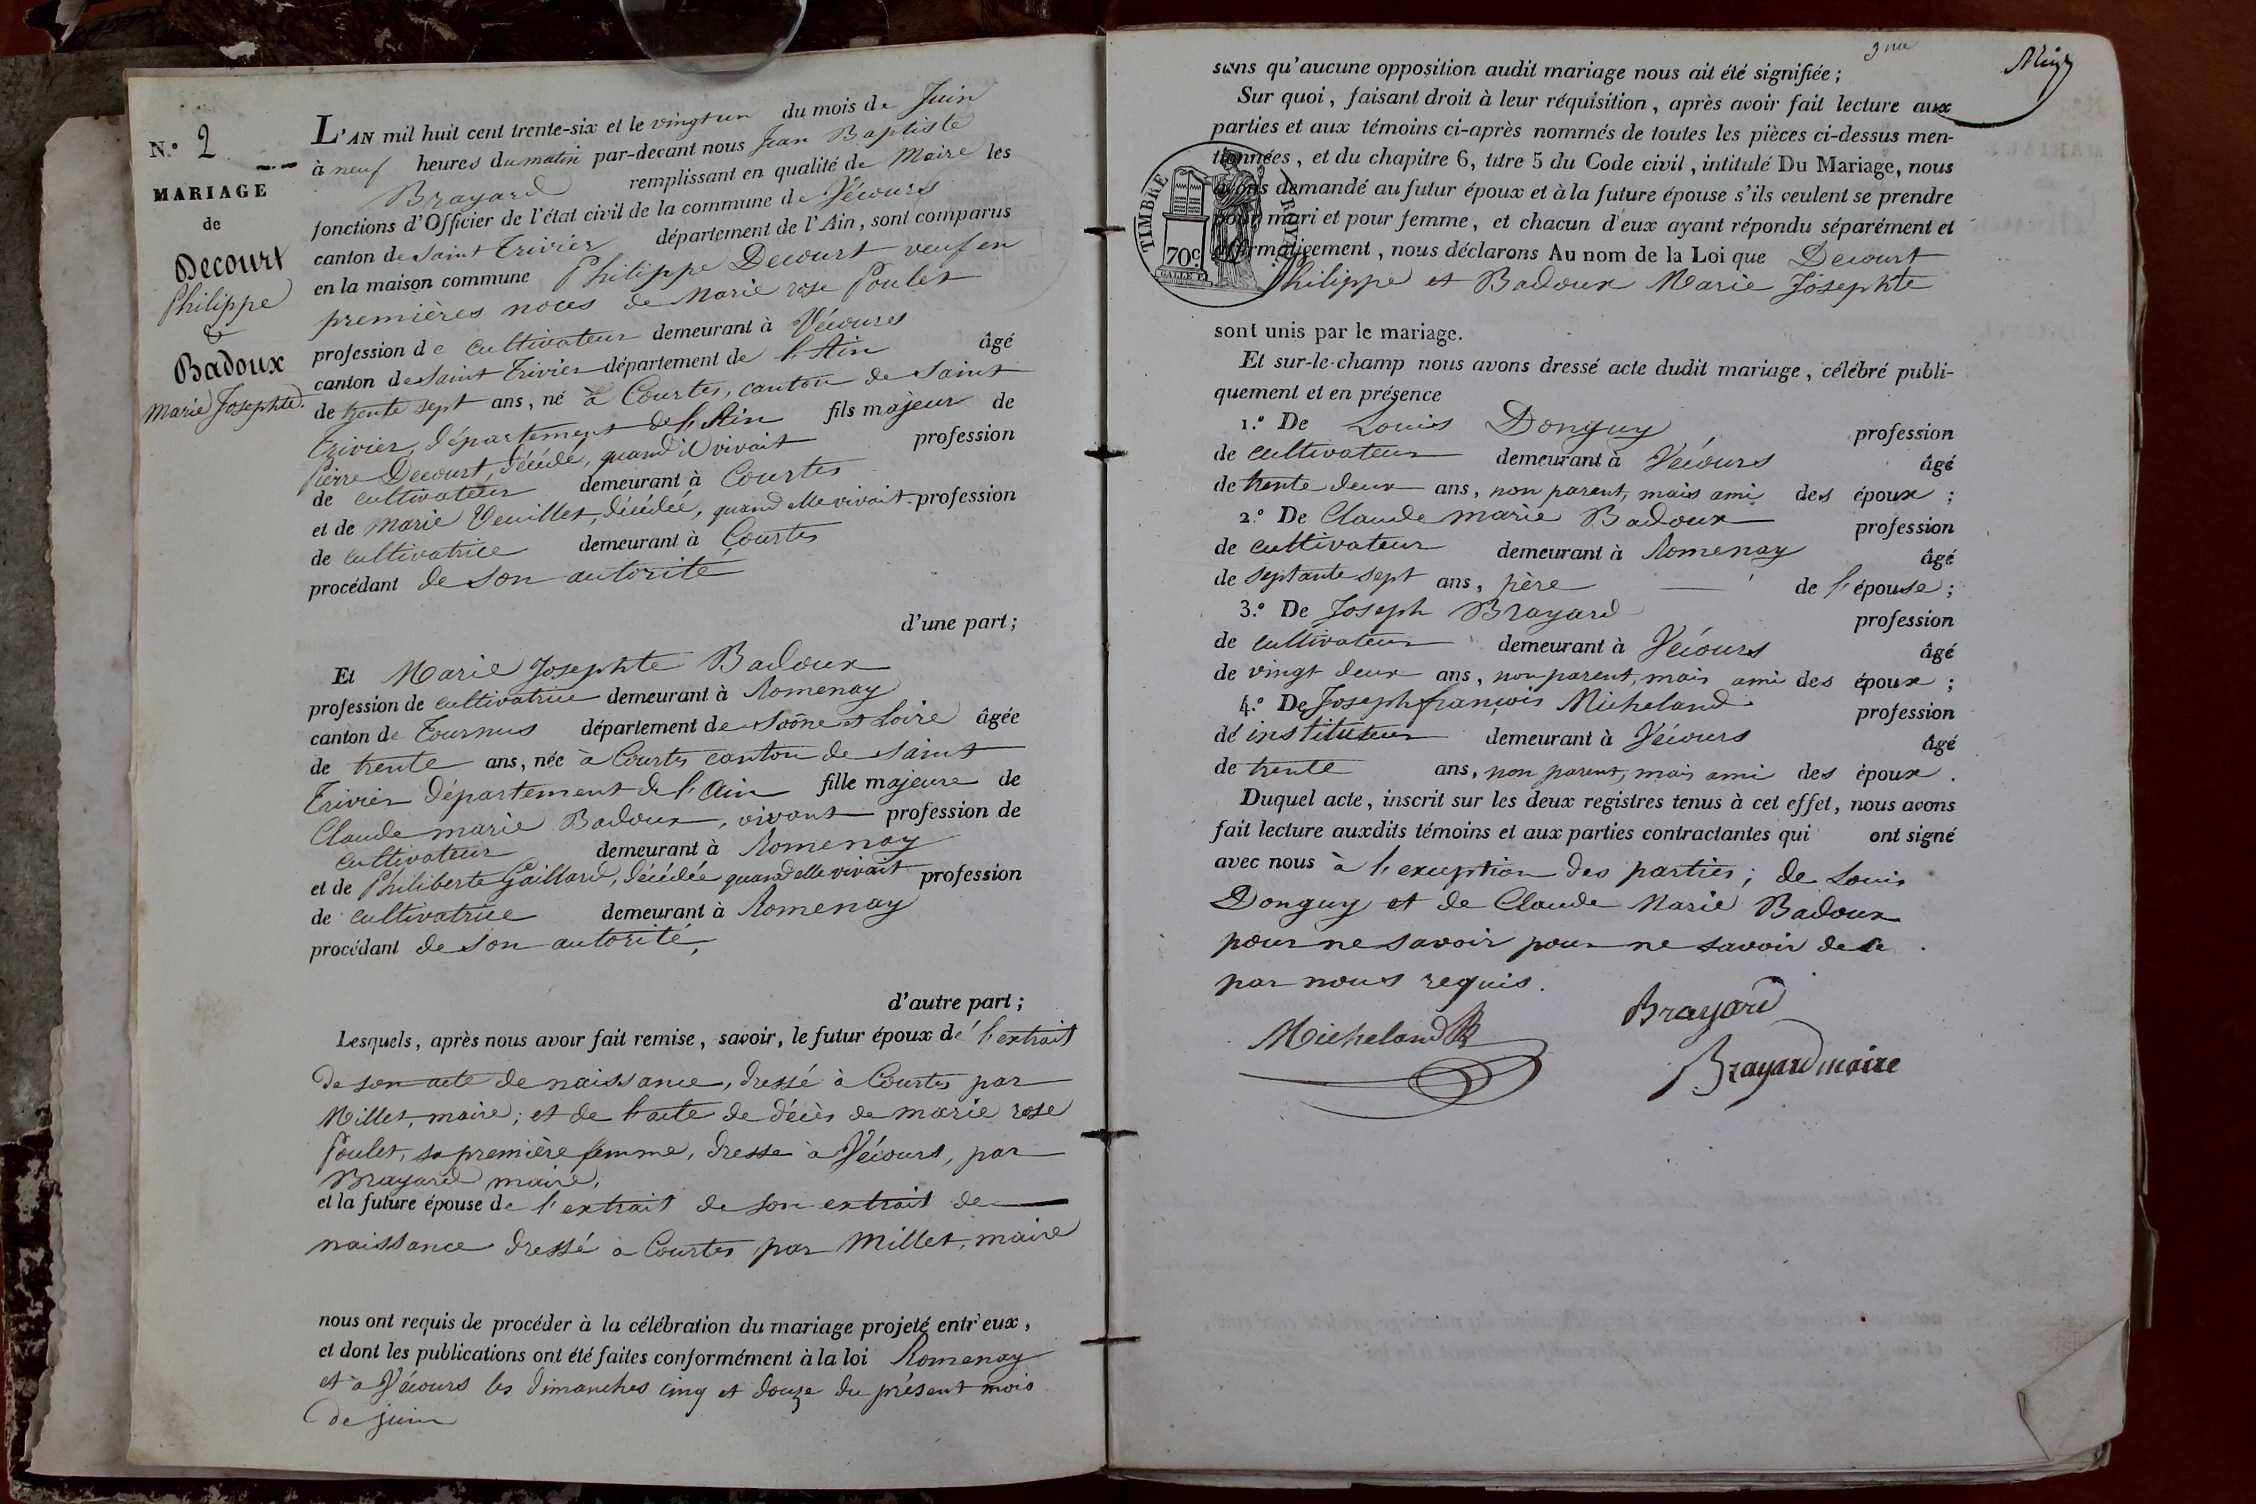 N.° 2
MARIAGE
de
Decourt
Philippe
&
Badoux
Marie Josephte.
L'AN mil huit cent trente-six et le vingt un du mois de Juin
à neuf heures du matin par-devant nous Jean Baptiste
Brayard remplissant en qualité de Maire les
fonctions d'Officier de l'état civil de la commune de Vécours
canton de Saint Trivier département de l'Ain, sont comparus
en la maison commune Philippe Decourt veuf en
premières noces de Marie rose Poulet
profession de cultivateur demeurant à Vécoures
canton de Saint Trivier département de l'Ain âgé
de trente sept ans, né à Courtes, canton de Saint
Trivier, département de l'Ain fils majeur de
Pierre Decourt, décédé, quand il vivait profession
de cultivateur demeurant à Courtes
et de Marie Veuillet, décédée, quand elle vivait profession
de cultivatrice demeurant à Courtes
procédant de son autorité
d'une part;
Et Marie Josephte Badoux
profession de cultivatrice demeurant à Romenay
canton de Tournus département de Saône et Loire âgée
de trente ans, née à Courtes canton de Saint
Trivier département de l'Ain fille majeure de
Claude marie Badoux, vivant profession de
cultivateur demeurant à Romenay
et de Philiberte Gaillard, décédée quand elle vivait profession
de cultivatrice demeurant à Romenay
procédant de son autorité,
d'autre part;
Lesquels, après nous avoir fait remise, savoir, le futur époux de l'extrait
de son acte de naissance, dressé à Courtes par
Millet, maire; et de l'acte de décès de marie rose
Poulet, sa première femme, dressé à Vécours, par
Brayard maire,
et la future épouse de l'extrait de son extrait de
naissance dressé à Courtes par Millet, maire
nous ont requis de procéder à la célébration du mariage projeté entr'eux,
et dont les publications ont été faites conformément à la loi Romenay
et à Vécours les dimanches cinq et douze du présent mois
de juin
sans qu'aucune opposition audit mariage nous ait été signifiée;
Sur quoi, faisant droit à leur réquisition, après avoir fait lecture aux
parties et aux témoins ci-après nommés de toutes les pièces ci-dessus men-
tionnées, et du chapitre 6, titre 5 du Code civil, intitulé Du Mariage, nous
avons demandé au futur époux et à la future épouse s'ils veulent se prendre
pour mari et pour femme, et chacun d'eux ayant répondu séparément et
affirmativement, nous déclarons Au nom de la Loi que Decourt
Philippe et Badoux Marie Josephte
TIMBRE ROYAL
70c.
sont unis par le mariage.
Et sur-le-champ nous avons dressé acte dudit mariage, célébré publi-
quement et en présence
1.° De Louis Donguy profession
de cultivateur demeurant à Vécours âgé
de trente deux ans, non parent, mais ami des époux;
2.° De Claude marie Badoux profession
de cultivateur demeurant à Romenay âgé
de septante sept ans, père de l'épouse;
3.° De Joseph Brayard profession
de cultivateur demeurant à Vécours âgé
de vingt deux ans, non parent, mais ami des époux;
4.° De Joseph françois Micheland profession
de instituteur demeurant à Vécours âgé
de trente ans, non parent, mais ami des époux.
Duquel acte, inscrit sur les deux registres tenus à cet effet, nous avons
fait lecture auxdits témoins et aux parties contractantes qui ont signé
avec nous à l'exception des parties; de Louis
Donguy et de Claude Marie Badoux
pour ne savoir pour ne savoir de ce
par nous requis.
Micheland Brayard
Brayard maire